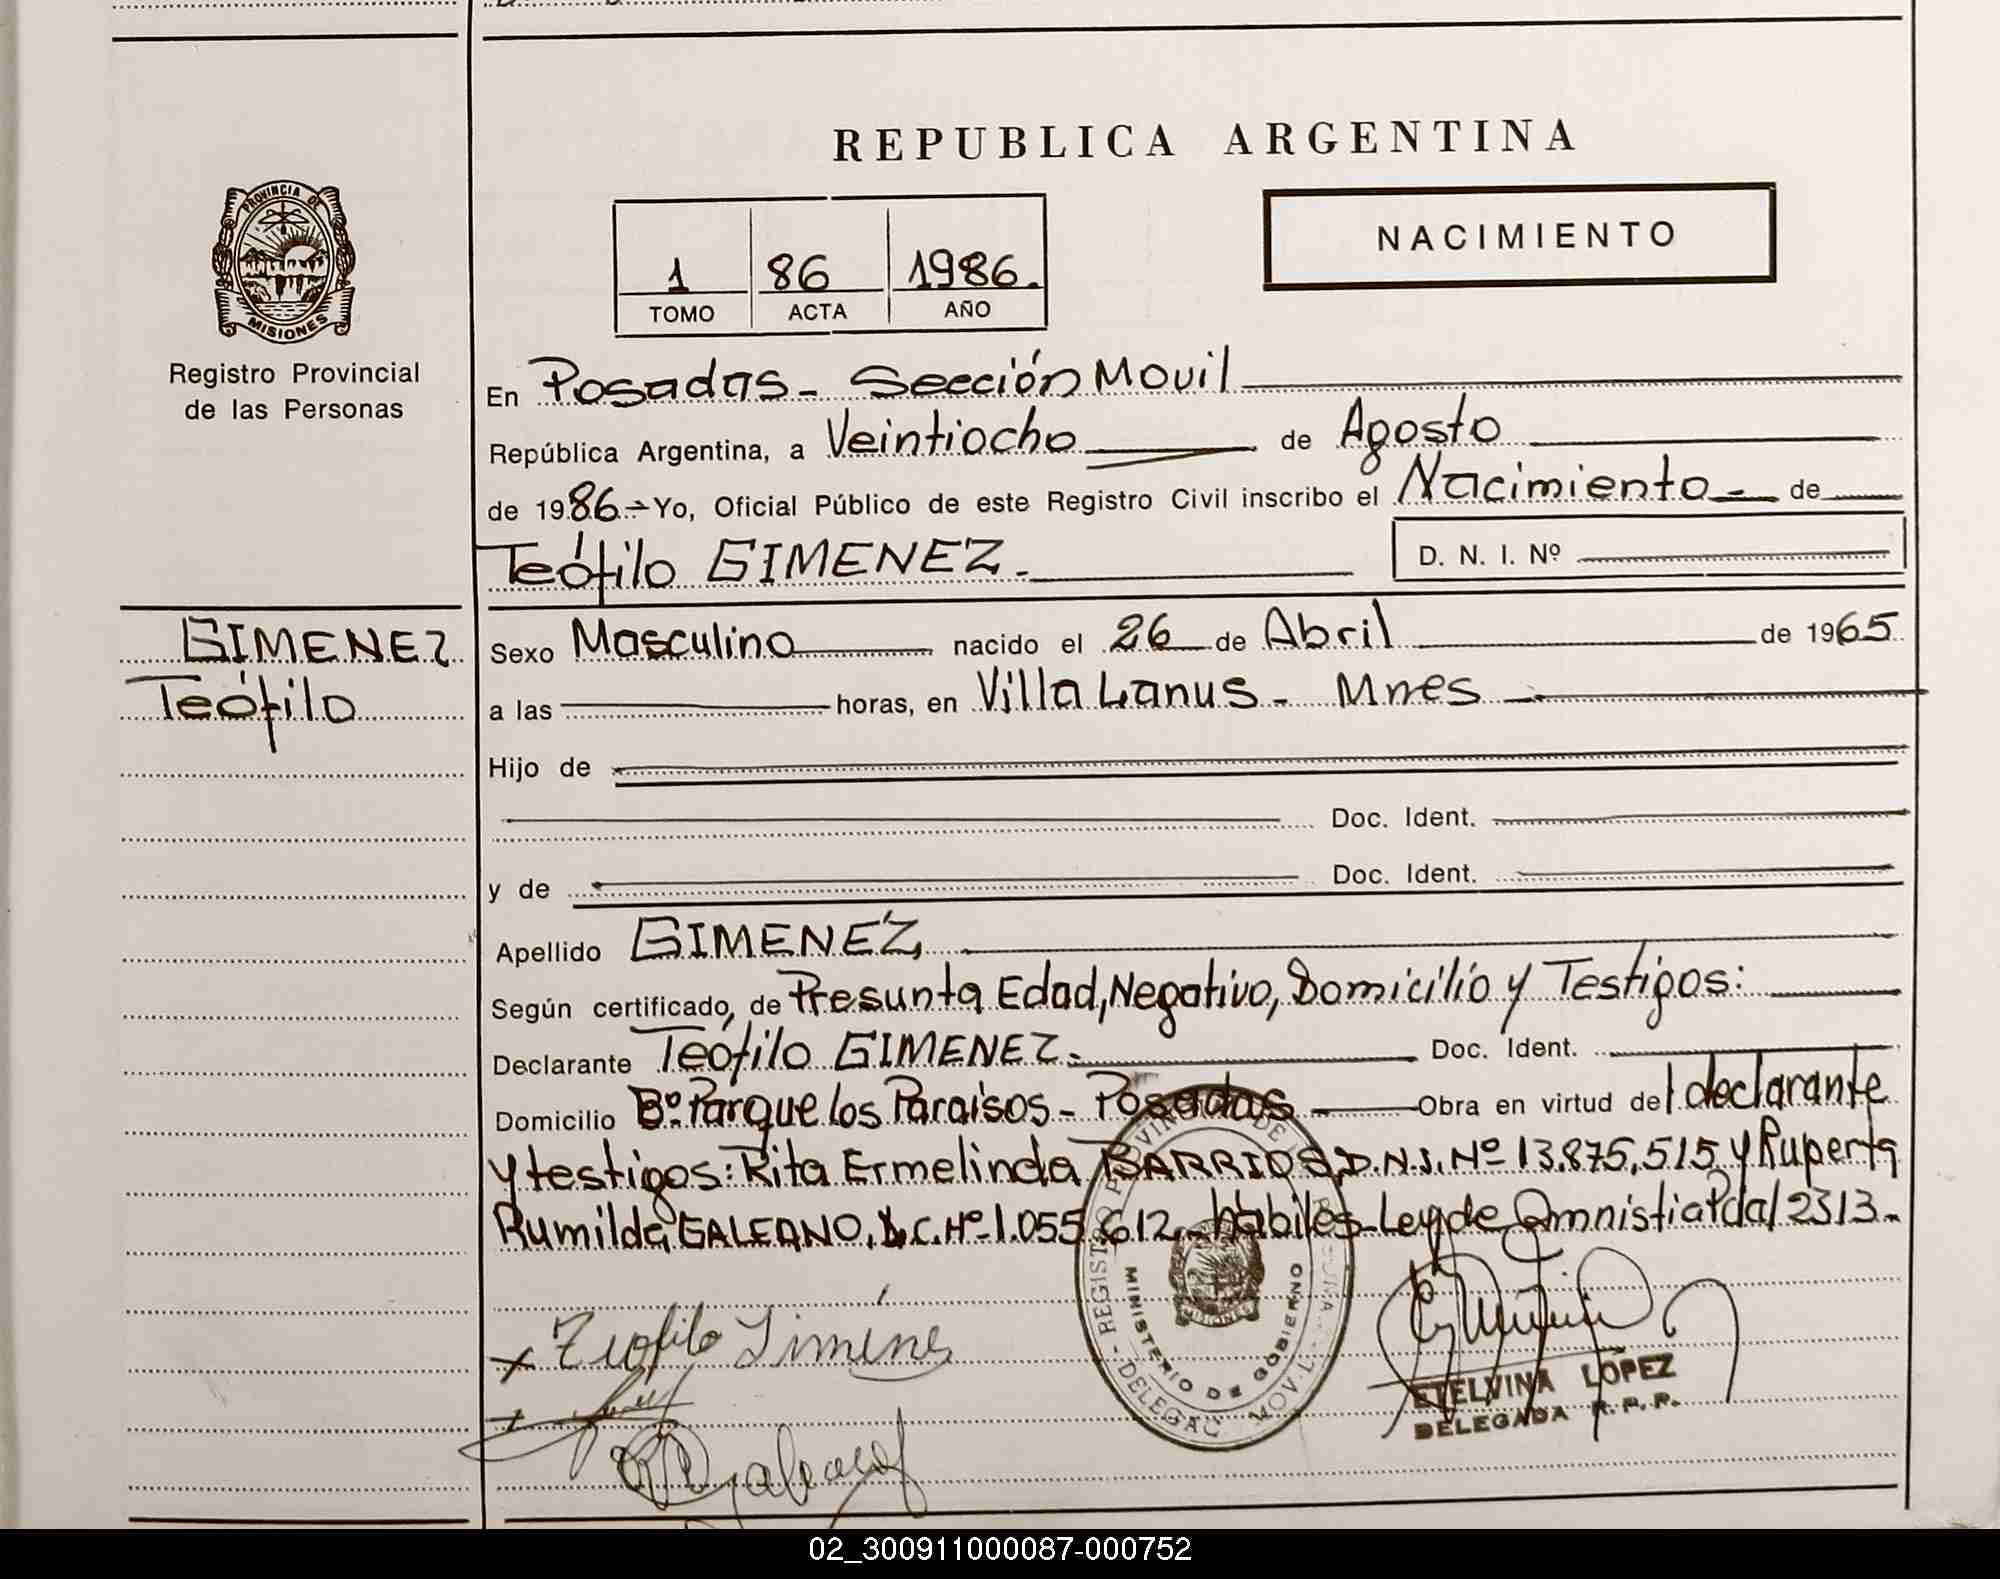 REPUBLICA ARGENTINA
PROVINCIA DE
MISIONES
Registro Provincial
de las Personas
1 86 1986.
TOMO ACTA AÑO
NACIMIENTO
En Posadas - Sección Movil
República Argentina, a Veintiocho de Agosto
de 1986.- Yo, Oficial Público de este Registro Civil inscribo el Nacimiento - de
Teófilo GIMENEZ.
D. N. I. Nº
GIMENEZ
Teófilo
Sexo Masculino nacido el 26 de Abril de 1965
a las horas, en Villa Lanus - Mnes
Hijo de
Doc. Ident.
y de Doc. Ident.
Apellido GIMENEZ
Según certificado, de Presunta Edad, Negativo, Domicilio y Testigos:
Declarante Teófilo GIMENEZ.- Doc. Ident.
Domicilio Bº. Parque los Paraisos - Posadas - Obra en virtud del declarante
y testigos: Rita Ermelinda BARRIOS, D.N.I. Nº 13.875.515 y Ruperta
Rumilda GALEANO, L.C. Nº 1.055.612 - habiles - Ley de Amnistia Pcial 2313.-
Teofilo Jiménes
MINISTERIO DE GOBIERNO
ETELVINA LOPEZ
DELEGADA R.P.P.
02_300911000087-000752